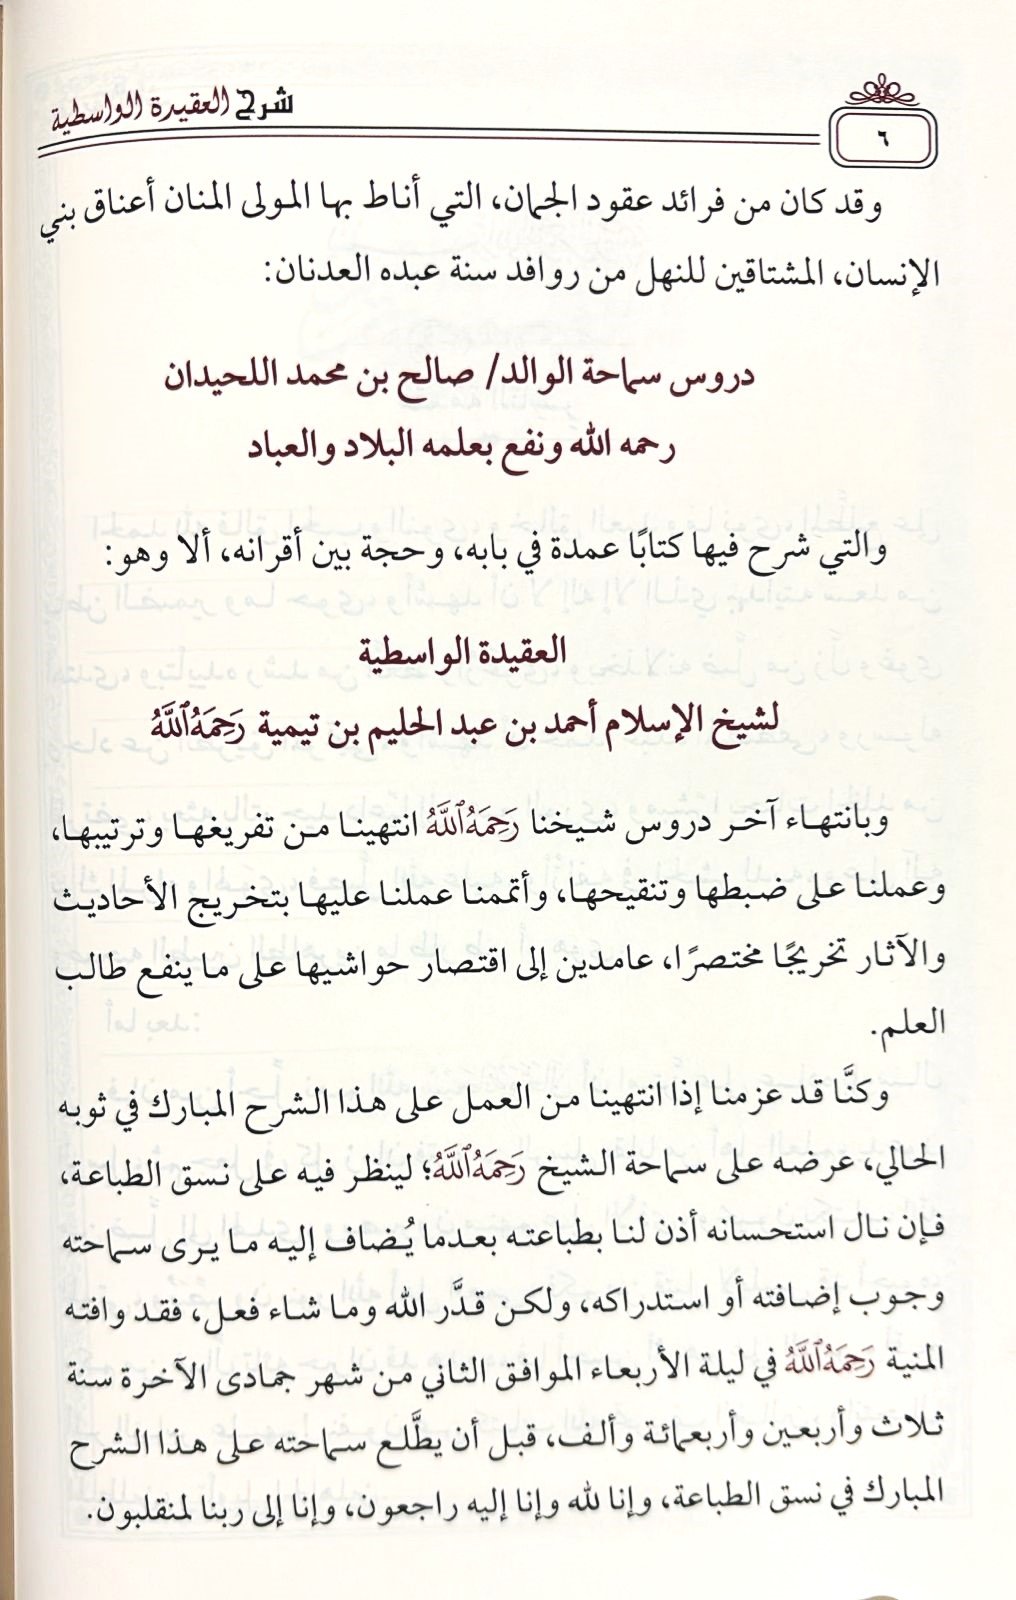 شرح العقيدة الواسطية
٦
وقد كان من فرائد عقود الجمان، التي أناط بها المولى المنان أعناق بني
الإنسان، المشتاقين للنهل من روافد سنة عبده العدنان:
دروس سماحة الوالد/ صالح بن محمد اللحيدان
رحمه الله ونفع بعلمه البلاد والعباد
والتي شرح فيها كتابًا عمدة في بابه، وحجة بين أقرانه، ألا وهو:
العقيدة الواسطية
لشيخ الإسلام أحمد بن عبد الحليم بن تيمية رَحِمَهُ ٱللَّهُ
وبانتهاء آخر دروس شيخنا رَحِمَهُ ٱللَّهُ انتهينا من تفريغها وترتيبها،
وعملنا على ضبطها وتنقيحها، وأتممنا عملنا عليها بتخريج الأحاديث
والآثار تخريجًا مختصرًا، عامدين إلى اقتصار حواشيها على ما ينفع طالب
العلم.
وكنَّا قد عزمنا إذا انتهينا من العمل على هذا الشرح المبارك في ثوبه
الحالي، عرضه على سماحة الشيخ رَحِمَهُ ٱللَّهُ؛ لينظر فيه على نسق الطباعة،
فإن نال استحسانه أذن لنا بطباعته بعدما يُضاف إليه ما يرى سماحته
وجوب إضافته أو استدراكه، ولكن قدَّر الله وما شاء فعل، فقد وافته
المنية رَحِمَهُ ٱللَّهُ في ليلة الأربعاء الموافق الثاني من شهر جمادى الآخرة سنة
ثلاث وأربعين وأربعمائة وألف، قبل أن يطَّلع سماحته على هذا الشرح
المبارك في نسق الطباعة، وإنا لله وإنا إليه راجعون، وإنا إلى ربنا لمنقلبون.